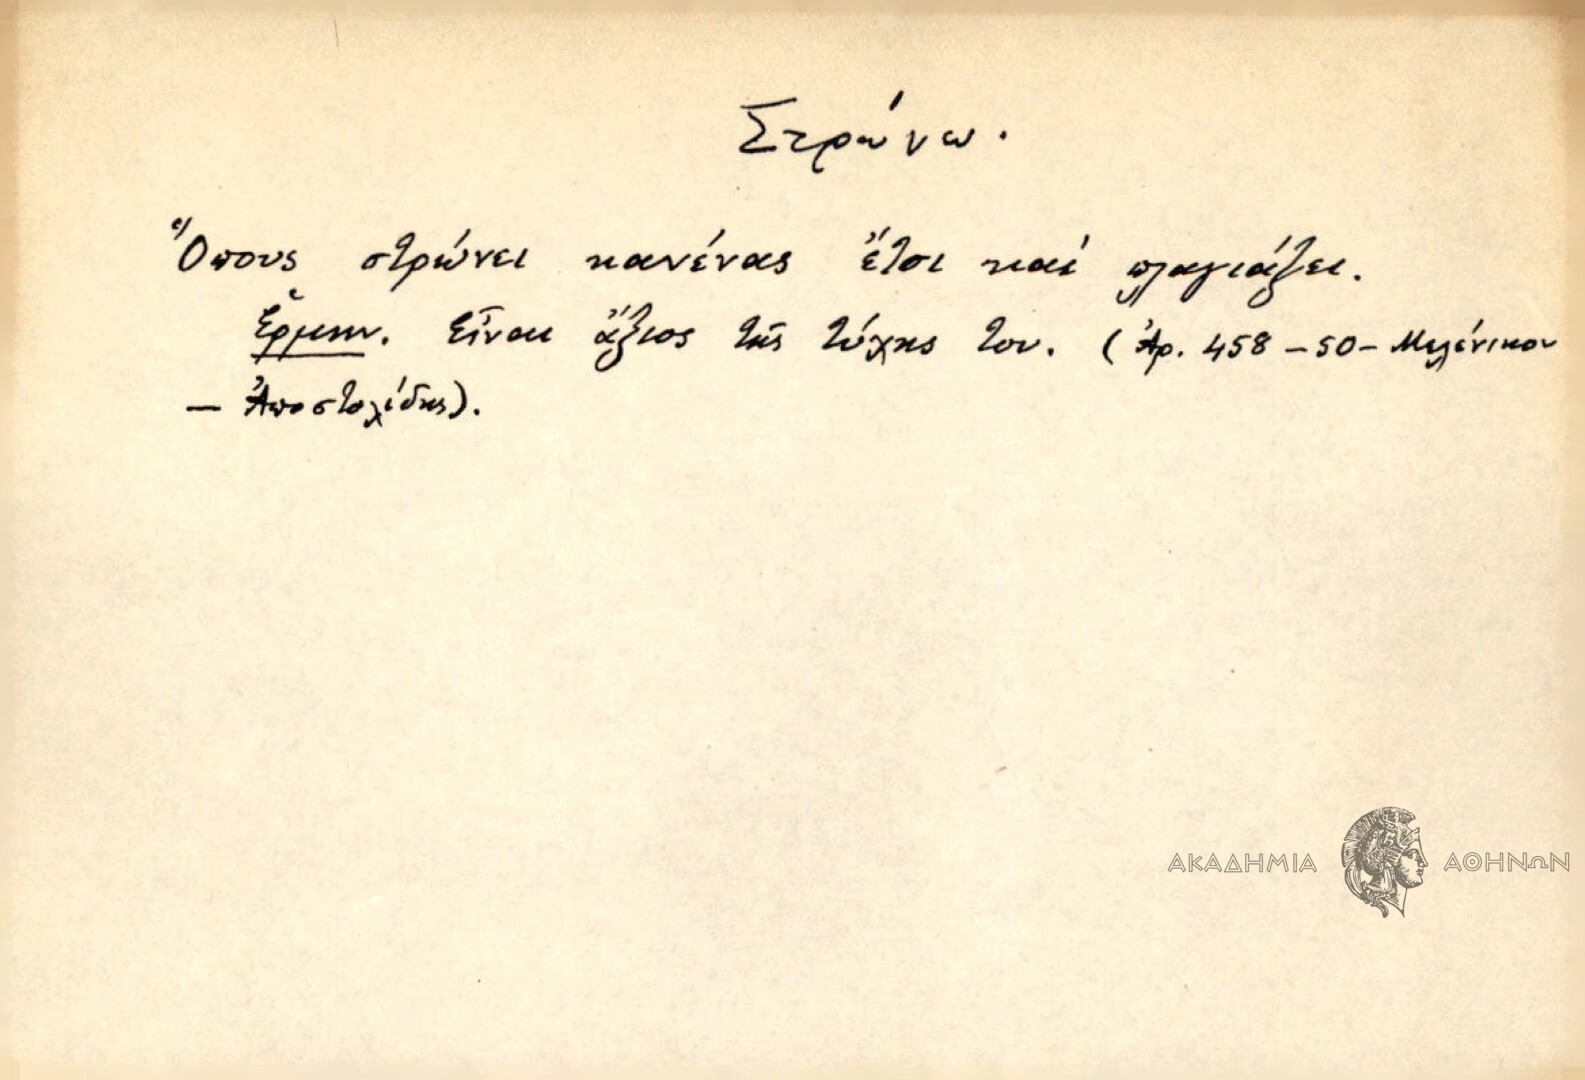 Στρώνω.
Ὅπους στρώνει κανένας ἔτσι καί πλαγιάζει.
Ἑρμην. Εἶναι ἄξιος τῆς τύχης του. (Ἀρ. 458 - 50 - Μελένικον
- Ἀποστολίδης).
ΑΚΑΔΗΜΙΑ ΑΘΗΝΩΝ